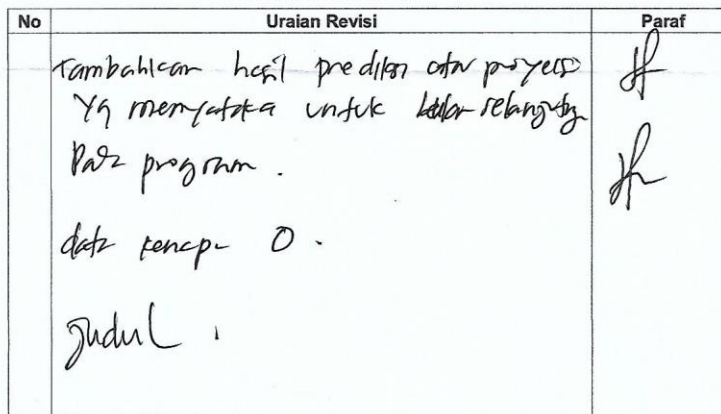 No Uraian Revisi Paraf
Tambahkan hasil prediksi atau proyeksi
Yg menyataka untuk bulan selanjutnya
Pada program.
data kenapa 0.
Judul